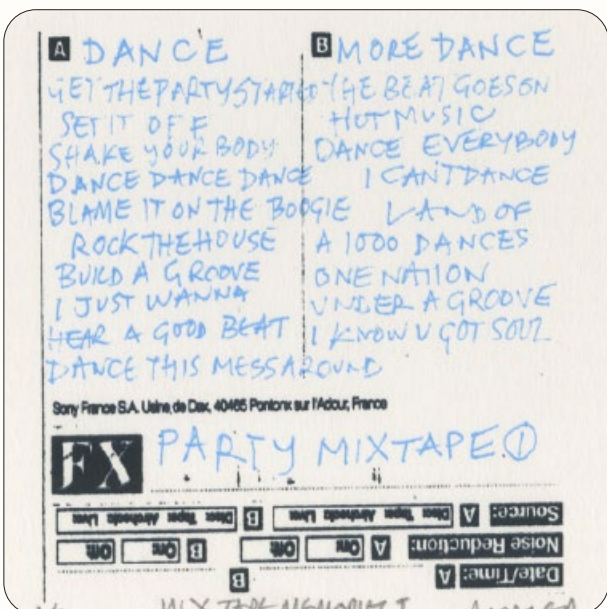 A DANCE
GET THE PARTY STARTED
SET IT OFF
SHAKE YOUR BODY
DANCE DANCE DANCE
BLAME IT ON THE BOOGIE
ROCK THE HOUSE
BUILD A GROOVE
I JUST WANNA
HEAR A GOOD BEAT
DANCE THIS MESS AROUND
B MORE DANCE
THE BEAT GOES ON
HOT MUSIC
DANCE EVERYBODY
I CAN'T DANCE
LAND OF
A 1000 DANCES
ONE NATION
UNDER A GROOVE
I KNOW U GOT SOUL
Sony France S.A. Usine de Dax, 40465 Pontonx sur l'Adour, France
FX PARTY MIXTAPE ①
Source: A Disc Tape Airchecks Live B Disc Tape Airchecks Live
Noise Reduction: A On: Off: B On: Off:
Date/Time: A B
MIX TAPE